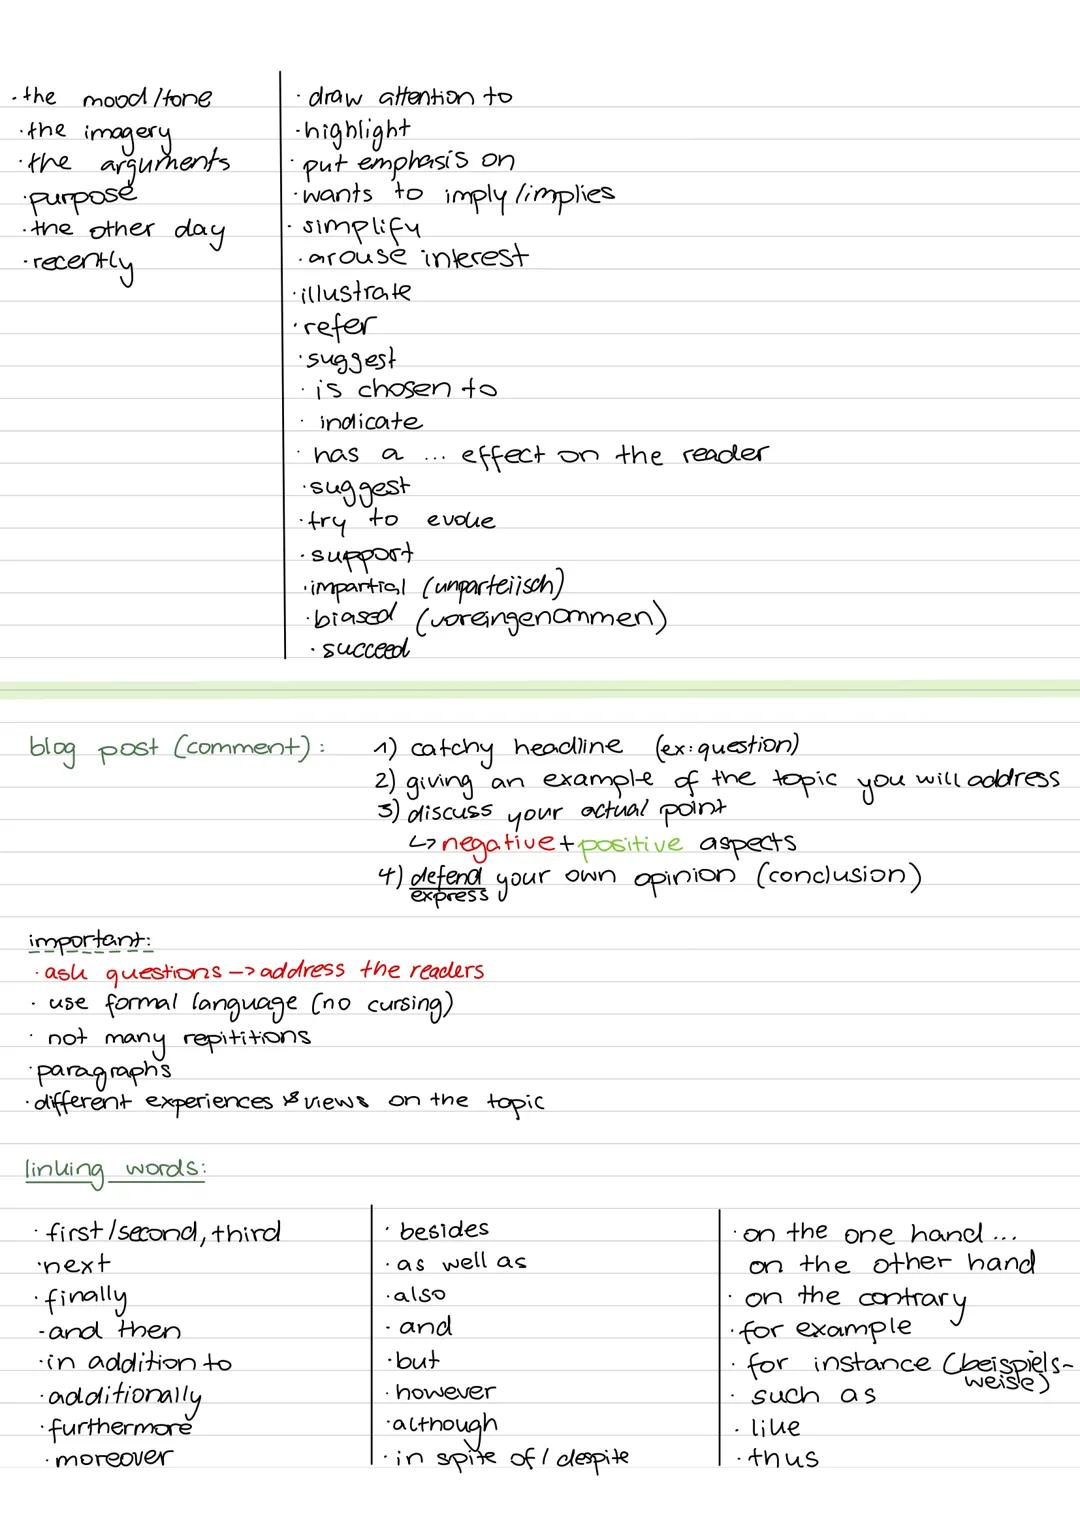 · the mood/tone
· the imagery
· the arguments
· purpose
· the other day
· recently
· draw attention to
· highlight
· put emphasis on
· wants to imply/implies
· simplify
· arouse interest
· illustrate
· refer
· suggest
· is chosen to
· indicate
· has a ... effect on the reader
· suggest
· try to evoke
· support
· impartial (unparteiisch)
· biased (voreingenommen)
· succeed
blog post (comment):
1) catchy headline (ex: question)
2) giving an example of the topic you will address
3) discuss your actual point
↳ negative + positive aspects
4) defend your own opinion (conclusion)
express
important:
· ask questions -> address the readers
· use formal language (no cursing)
· not many repititions
· paragraphs
· different experiences & views on the topic
linking words:
· first/second, third
· next
· finally
· and then
· in addition to
· additionally
· furthermore
· moreover
· besides
· as well as
· also
· and
· but
· however
· although
· in spite of / despite
· on the one hand ...
on the other hand
· on the contrary
· for example
· for instance (beispiels-
weise)
· such as
· like
· thus